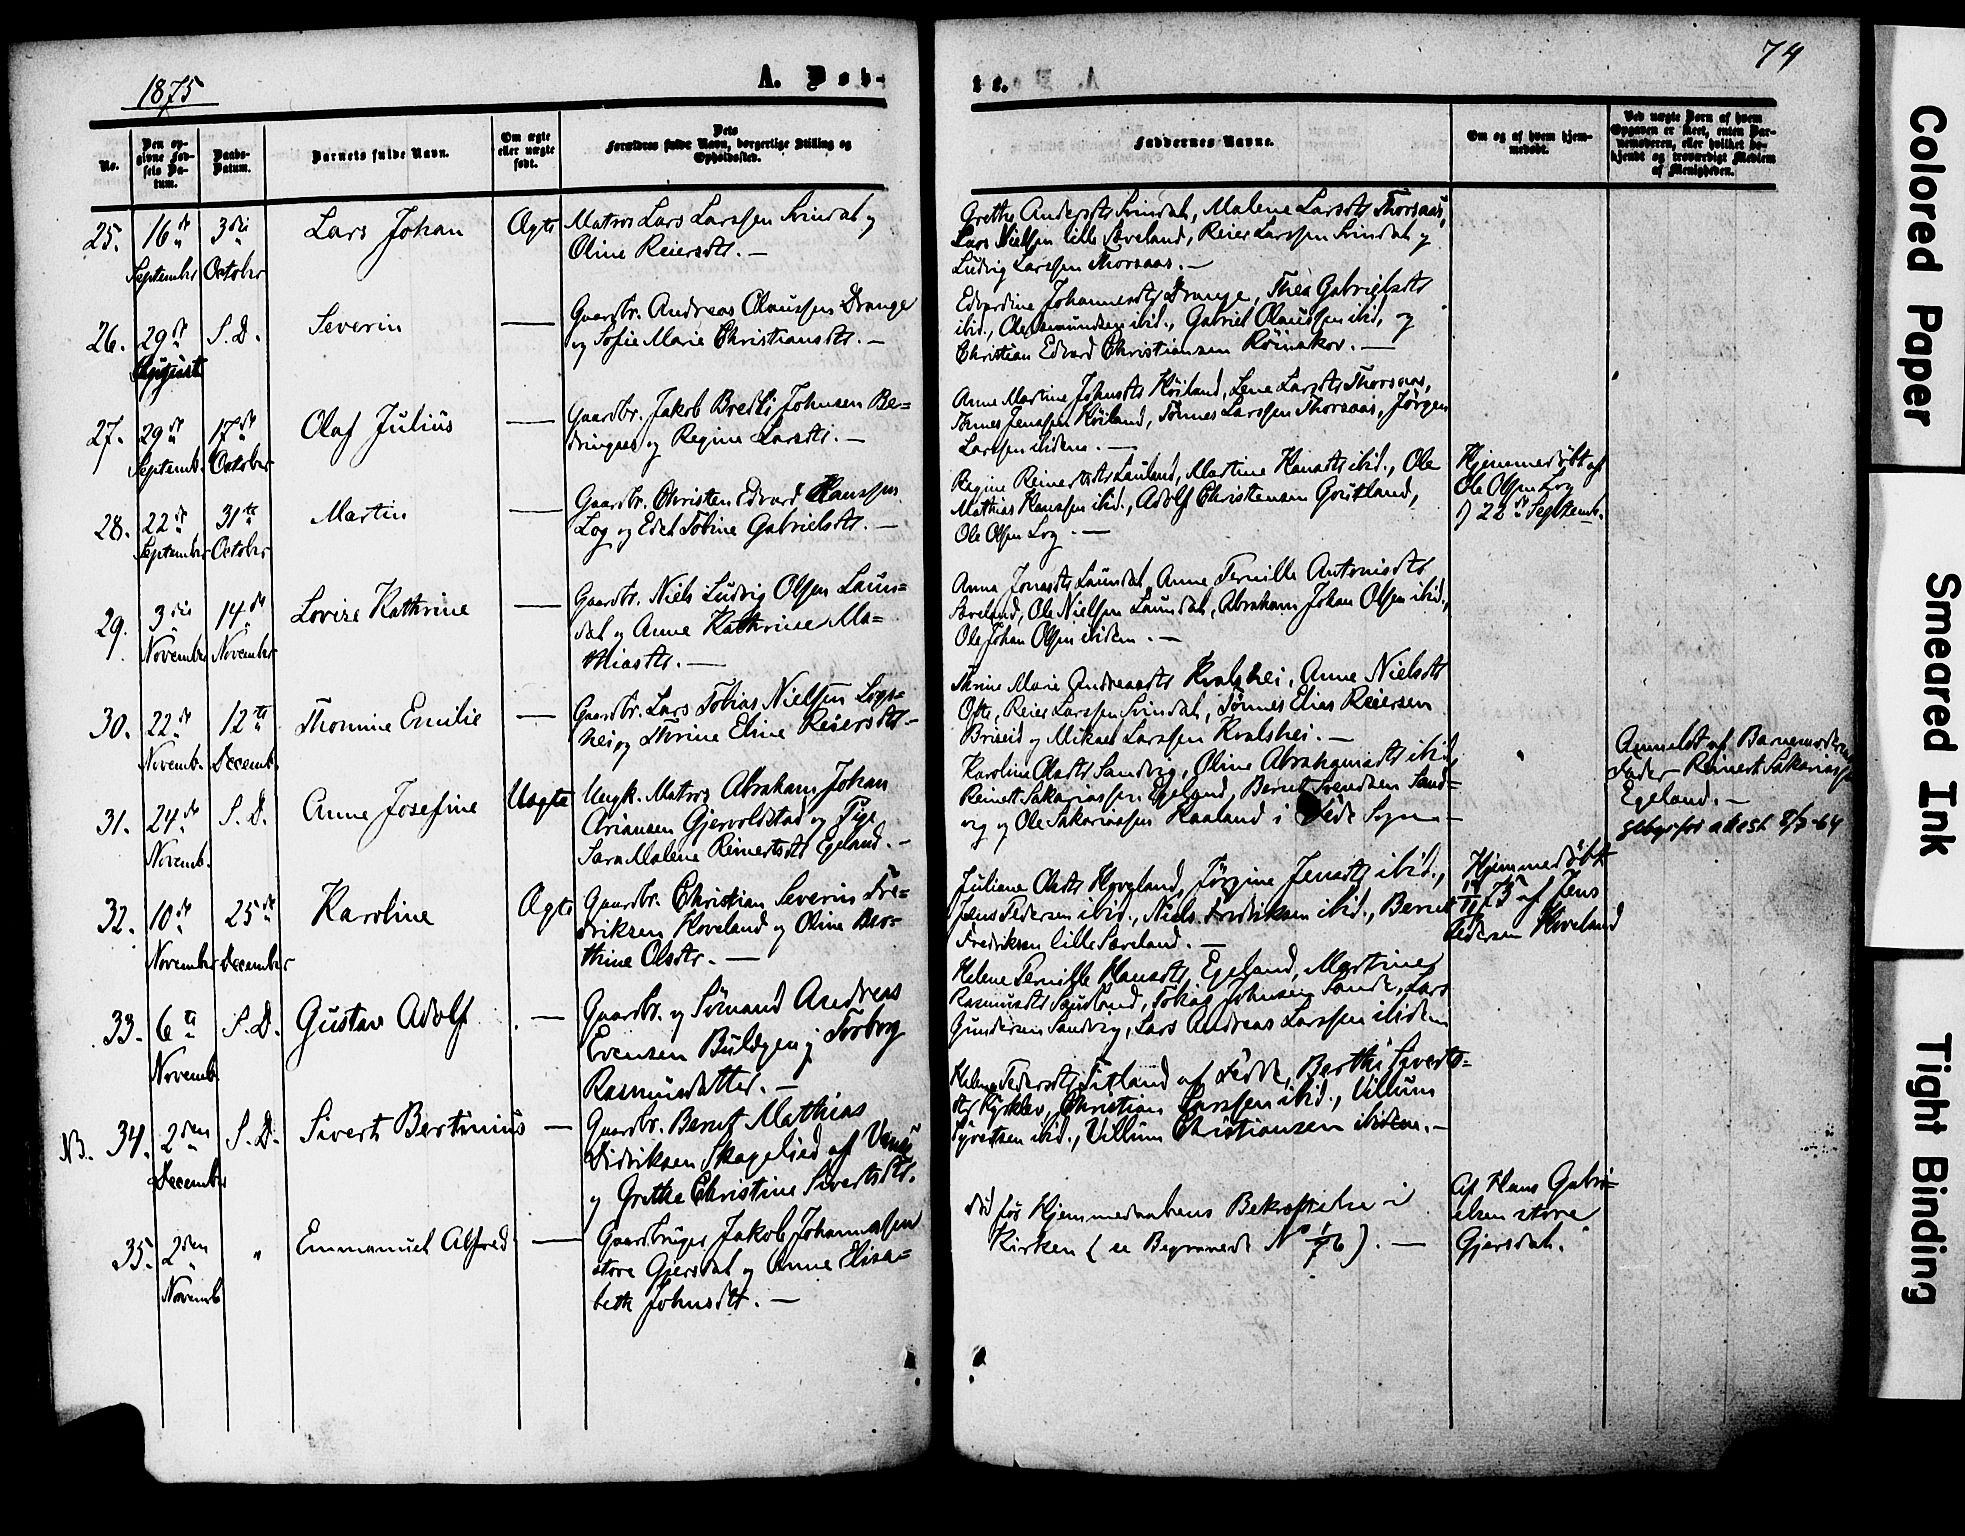 1875
A. Døb-
te.
74
No.
Den op-
givne Fød-
sels Da-
tum.
Daabs-
Datum.
Barnets fulde Navn.
Om ægte
eller uægte
født.
Dets
Forældres fulde Navn, borgerlige Stilling og
Opholdssted.
Faddernes Navne.
Om og af hvem hjem-
medøbt.
Ved uægte Børn af hvem
Opgaven er skeet, enten Bar-
nemoderen, eller hvilket be-
kjendt og troværdigt Medlem
af Menigheden.
25. 16de September 3die October
Lars Johan
Ægte
Matros Lars Larssen Svindal og
Oline Reiersdtr. —
Grethe Andersdtr Svindal, Malene Larsdtr Thorsaas,
Lars Nielsen lille Sæveland, Reier Larssen Svindal og
Ludvig Larssen Thorsaas. —
26. 29de August S. D.
Severin
—
Gaardbr. Andreas Olaussen Drange
og Sofie Marie Christiansdtr. —
Edvardine Johannesdtr Drange, Thea Gabrielsdtr
ibid., Ole Asmundsen ibid., Gabriel Olaussen ibid, og
Christian Edvard Christiansen
27. 29de Septemb. 17de October
Olaf Julius
—
Gaardbr. Jakob Bredli Johnsen Be-
dringaas og Regine Larsdtr. —
Anne Martine Johnsdtr Høiland, Lene Larsdtr Thorsaas,
Jenssen Høiland, Tønnes Larssen Thorsaas, Jørgen
Larssen ibidem. —
28. 22de September 31te October
Martin
—
Gaardbr. Christen Edvard Hanssen
Log og Edel Tobine Gabrielsdtr. —
Regine Reinertsdtr Mathias Hanssen ibid., Martine Hansdtr ibid., Ole
Adolf Christensen
Ole Olsen Log. —
Hjemmedøbt af
Ole Olsen Log
d 22de Septemb.
29. 3die November 14de November
Lovise Kathrine
—
Gaardbr. Niels Ludvig Olsen Laun-
dal og Anne Kathrine Ma-
thiasdtr. —
Anna Jonasdtr Laundal, Anne Pernille Antonisdtr
Sæveland, Ole Nielsen Laundal, Abraham Johan Olsen ibid.,
Ole Johan Olsen ibidem. —
30. 22de Novemb. 12te Decemb.
Thomine Emilie
—
Gaardbr. Lars Tobias Nielsen Logs-
hei og Thrine Eline Reiersdtr —
Thrine Marie Andreasdtr Kvalshei, Anne Nielsdtr
Ofte, Reier Larssen Svindal, Tønnes Elias Reiersen
Briseid og Mikael Larssen Kvalshei. —
31. 24de Novemb. S. D.
Anne Josefine
Uægte
Ungk. Matros Abraham Johan
Ariansen Gjervoldstad og Pige
Sara Malene Reinertsdtr Egeland. —
Karoline Olsdtr Sandvig, Oline Abrahamsdtr ibid
Reinert Sakariassen Egeland, Bernt Svendsen Sand-
vig og Ole Sakariassen Haaland i Fede Sogn —
Anmeldt af Barnemoderens
Fader Reinert Sakariassen
Egeland. —
32. 10de November 25de December
Karoline
Ægte
Gaardbr. Christian Severin Fre-
driksen Hoveland og Oline Ber-
thine Olsdtr. —
Juliane Olsdtr Hoveland, Jørgine Jensdtr ibid.,
Jens Pedersen ibid., Niels Fredriksen ibid., Bernt
Fredriksen lille Sæveland. —
Hjemmedøbt
75 af Jens
Pedersen Hoveland
33. 6te Novemb. S. D.
Gustav Adolf
. —
Gaardbr. og Sømand Andreas
Evensen Buløgen og Torborg
Rasmusdatter. —
Helene Pernille Hansdtr Egeland, Martine
Rasmusdtr Tobias Johnsen Sande, Lars
Gundersen Sandvig, Lars Andreas Larssen ibidem
NB. 34. 2den December S. D.
Sivert Bertinius
—
Gaardbr. Bernt Mathias
Didriksen Skagelied af Vanse
og Grethe Christine Sivertsdtr.
Helene Pedersdtr Titland af Fedde, Berthe Syverts-
dtr Christian Larssen ibid., Villum
Syvertsen ibid., Villum Christiansen ibidem. —
35. 2den Novemb "
Emmanuel Alfred
—
Gaardbruger Jakob Johannessen
store Gjersdal og Anne Elisa-
beth Johnsdtr. —
død før Hjemmedaabens Bekræftelse i
Kirken (se Begravede No 1/76). —
Af Hans Gabri-
elsen store
Gjersdal.
Colored Paper
Smeared Ink
Tight Binding